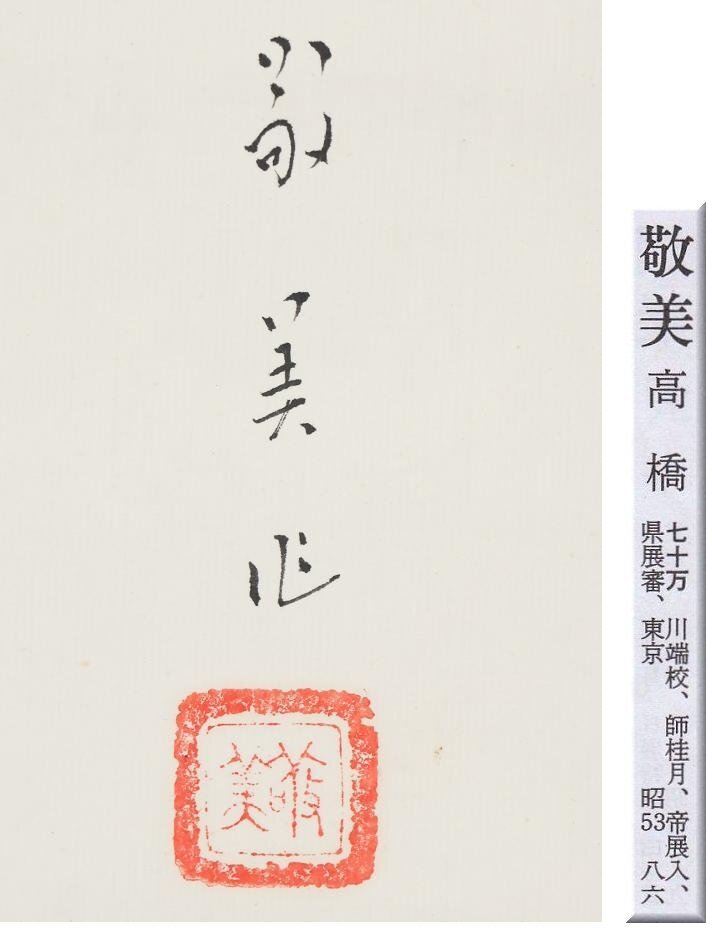 敬美作
敬美
敬美 高橋
七十万 川端校、師桂月、帝展入、
県展審、東京 昭53 八六